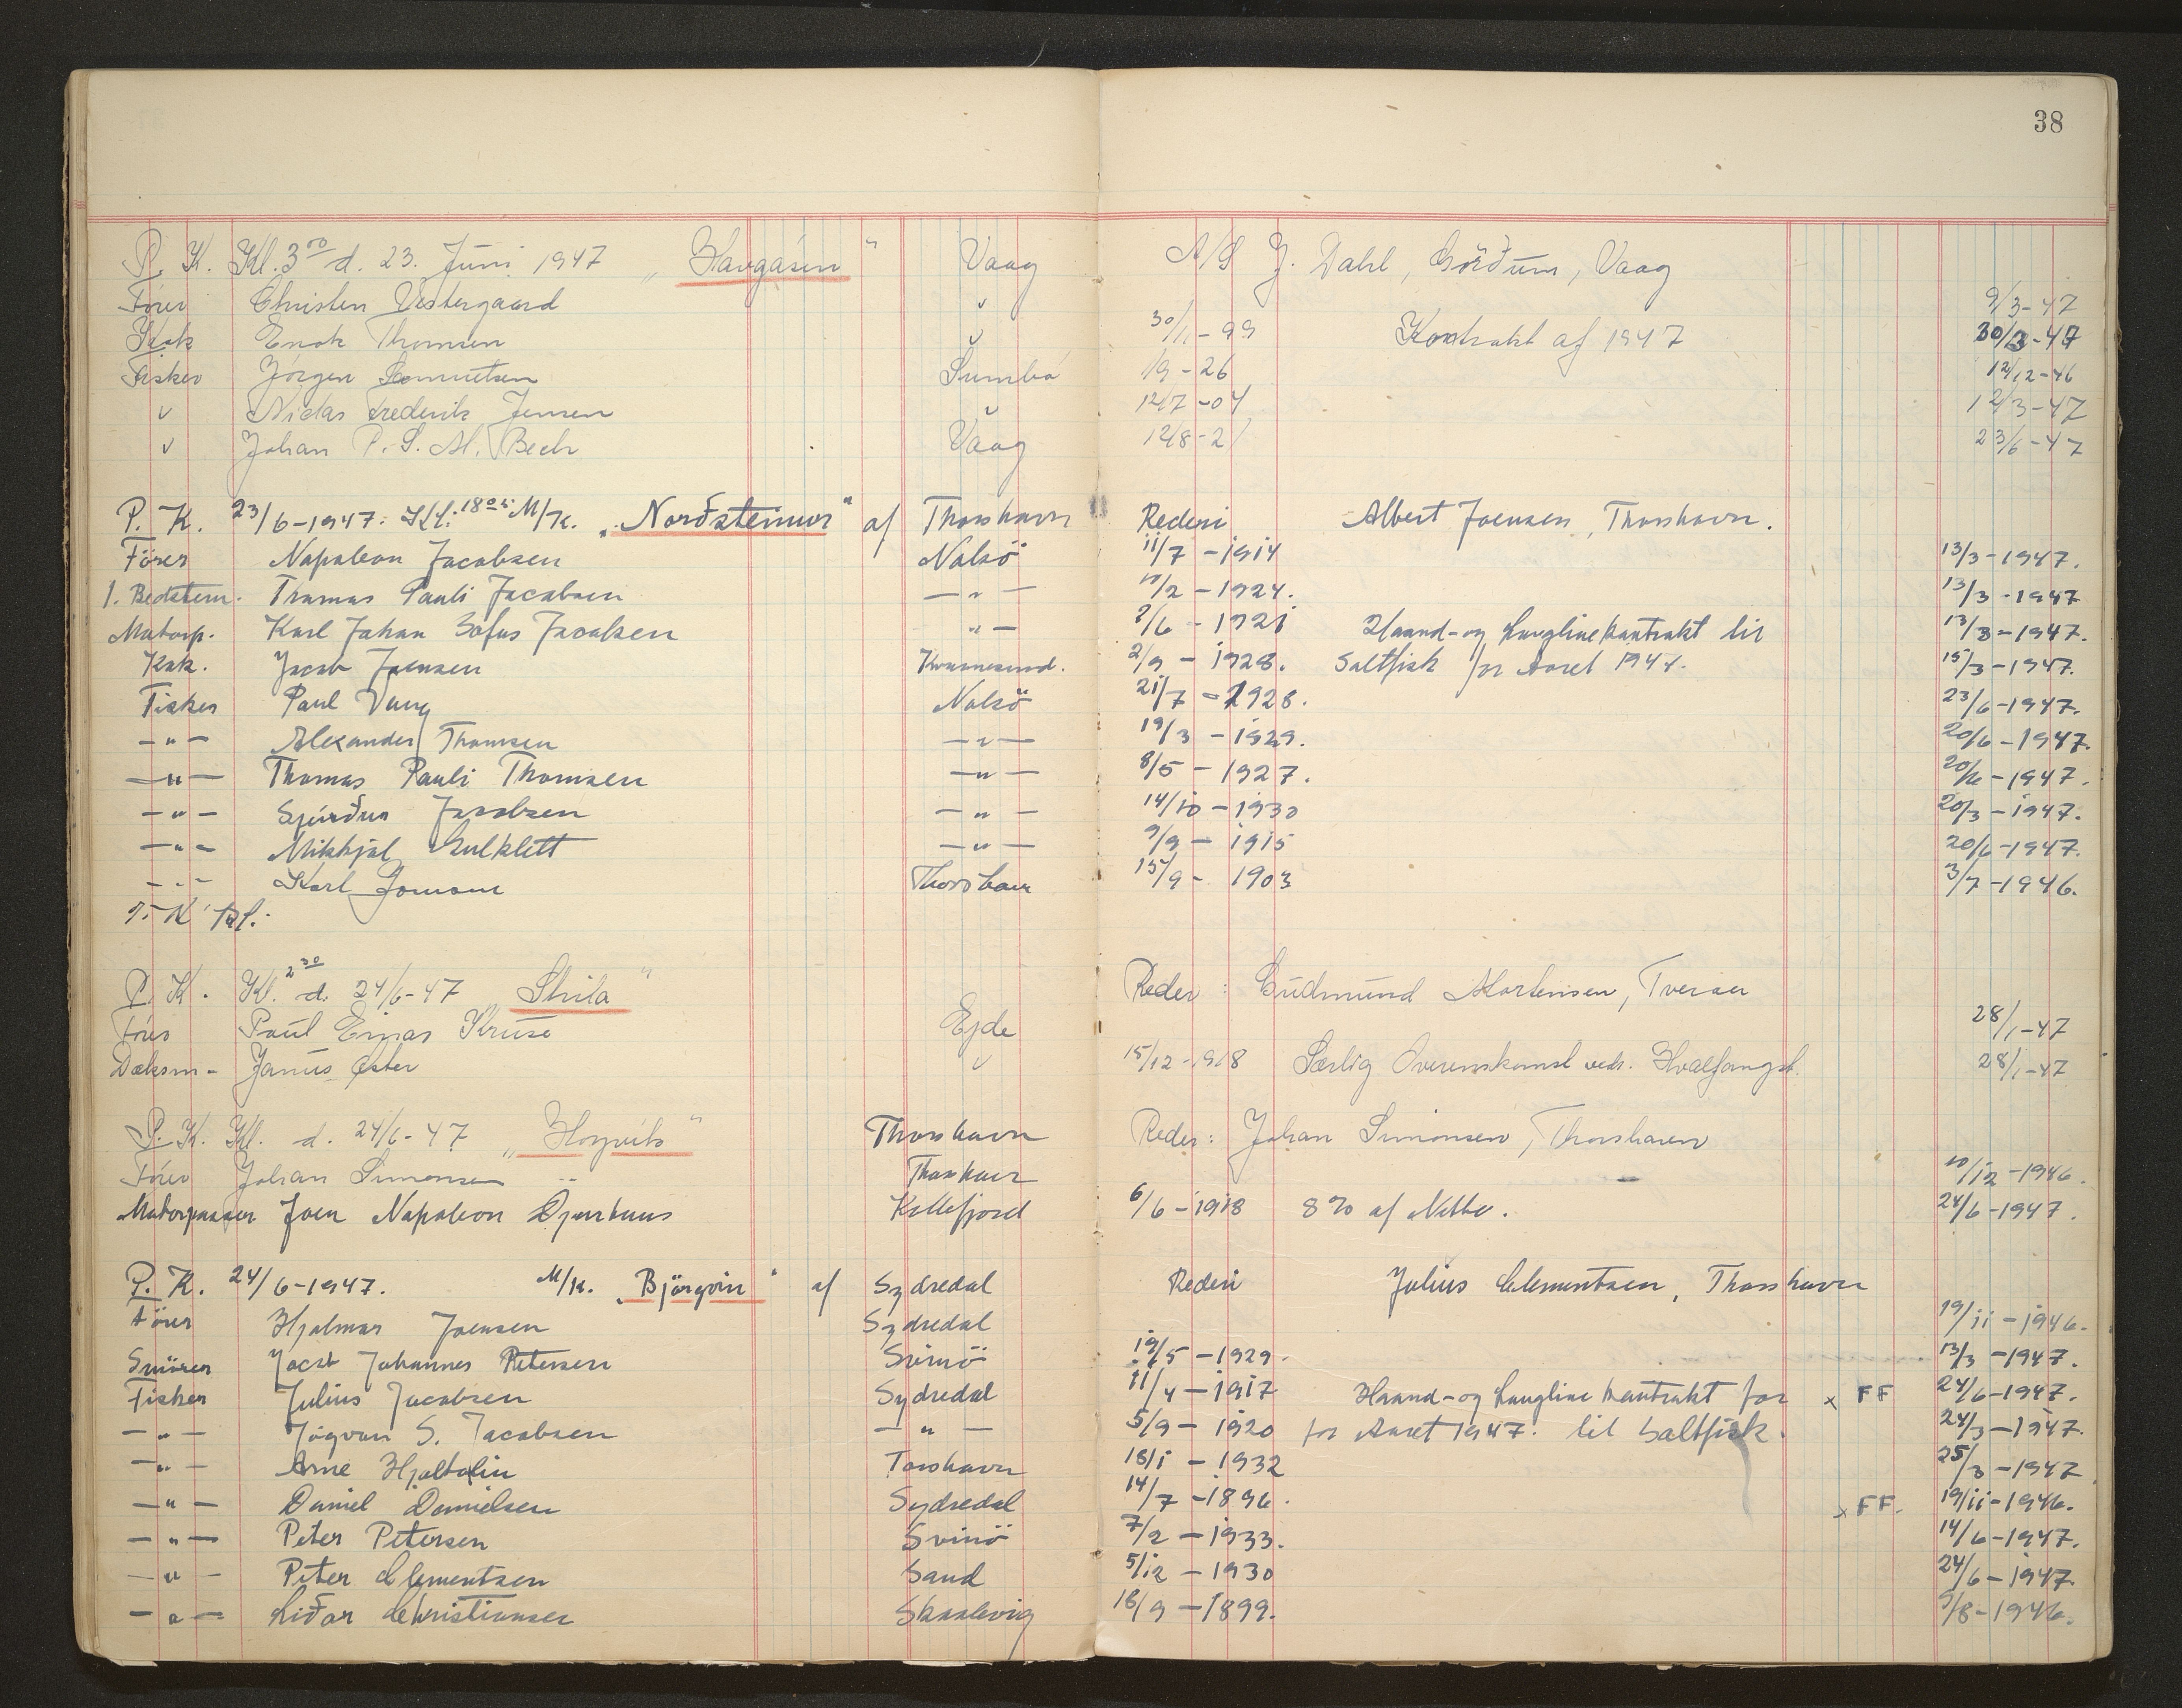 38
P. K. Kl. 3⁰⁰ d. 23. Juni 1947 „Havgásin“ Vaag A/S J. Dahl, Görðum, Vaag
Förer Christen Vestergaard " 9/3-47
Kok Enok Thomsen " 30/1-99 Kontrakt af 1947 30/3-47
Fisker Jörgen Sumbö 1/9-26 12/12-46
" Frederik Jensen " 12/7-04 12/3-47
" Johan P. S. M. Bech Vaag 12/8-21 23/6-47
P. K. 23/6-1947. Kl: 18 M/K. „Norðsteinur“ af Thorshavn Rederi Albert Joensen, Thorshavn.
Förer Napoleon Jacobsen Nolsö 11/7-1914 13/3-1947.
1. Bedstem. Thomas Pauli Jacobsen —"— 10/2-1924. 13/3-1947
Motorp. Karl Johan Sofus Jacobsen "— 8/6-1921 Haand-og Langlinekontrakt til 13/3-1947.
Kok. Jacob Joensen Kvannesund. 2/9-1928. Saltfisk for Aaret 1947. 15/3-1947.
Fisker Paul Vang Nolsö 21/7-1928. 23/6-1947.
—"— Alexander Thomsen —"— 19/3-1929. 20/6-1947.
—"— Thomas Pauli Thomsen —"— 8/5-1927. 20/6-1947.
—"— Sjúrður Jacobsen —"— 14/10-1930 20/3-1947.
—"— Mikkjal Gulklett —"— 9/9-1915 20/6-1947.
—"— Karl Thorshavn 15/9-1903 3/7-1946.
P. K. Kl. 2³⁰ d. 24/6-47 „Strila“ Reder: Gudmund Mortensen, Tveraa
Förer Paul Ejnar Kruse Ejde 28/1-47
Dæksm- Janus Øster " 15/12-1918 Særlig Overenskomst vedr. Hvalfangst. 28/1-47
P. K. Kl. d. 24/6-47 „Hogvik“ Thorshavn Reder: Johan Simonsen, Thorshavn
Förer Johan Simonsen Thorshavn 10/12-1946.
Motorpasser Joen Napoleon Djurhuus Kollefjord 6/6-1918 8% af Netto. 24/6-1947.
P. K. 24/6-1947. M/K. „Björgvin“ af Sydredal Rederi Julius Clementsen, Thorshavn
Förer Hjalmar Joensen Sydredal 19/11-1946.
Smörer Jacob Johannes Petersen Svinö 19/5-1929. 13/3-1947.
Fisker Julius Jacobsen Sydredal 11/4-1917 Haand-og Langlinekontrakt for x FF 24/6-1947.
—"— Jógvan S. Jacobsen —"— 5/9-1920 for Aaret 1947. til Saltfisk. 24/3-1947.
—"— Arne Hjaltalin Torshavn 18/1-1932 25/3-1947
—"— Daniel Danielsen Sydredal 14/7-1896. x FF. 19/11-1946.
—"— Peter Petersen Svinö 7/2-1933. 14/6-1947.
—"— Peter Clementsen Sand 5/12-1930 24/6-1947.
—"— Liðar Christiansen Skaalevig 18/9-1899. 9/8-1946.